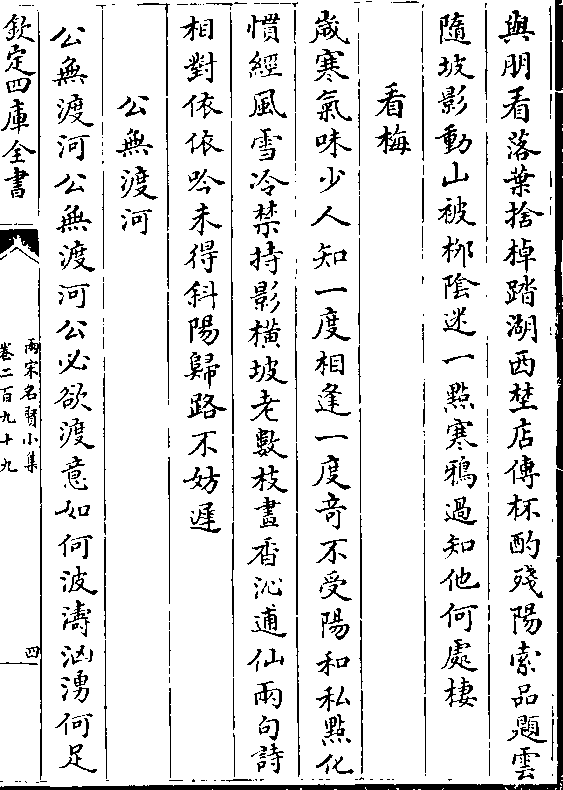 與朋看落葉捨棹踏湖西埜店傳杯酌殘陽索品題雲
隨坡影動山被栁陰迷一點寒鴉過知他何處棲
看梅
歳寒氣味少人知一度相逢一度竒不受陽和私點化
慣經風雪冷禁持影橫坡老數枝畫香沁逋仙兩句詩
相對依依吟未得斜陽歸路不妨遲
公無渡河
公無渡河公無渡河公必欲渡意如何波濤洶湧何足
欽定四庫全書
兩宋名賢小集
卷二百九十九
四